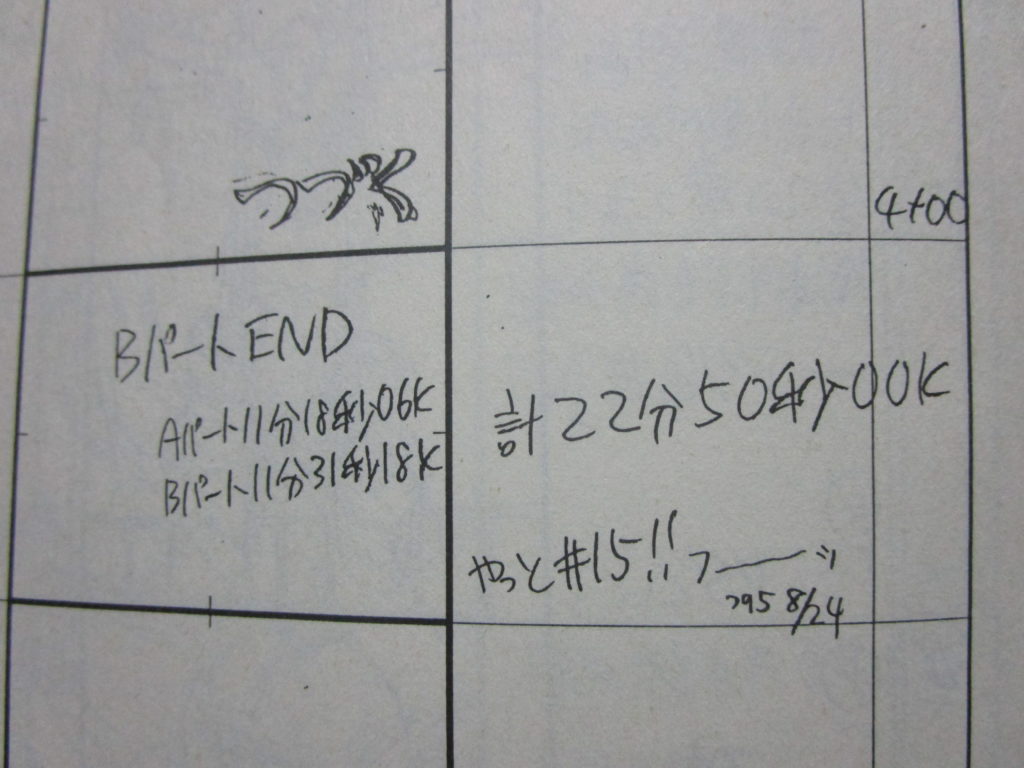 つづK
4+00
BパートEND
Aパート11分18秒06K
Bパート11分31秒18K
計22分50秒00K
やっと#15!!フーッ
'95 8/24